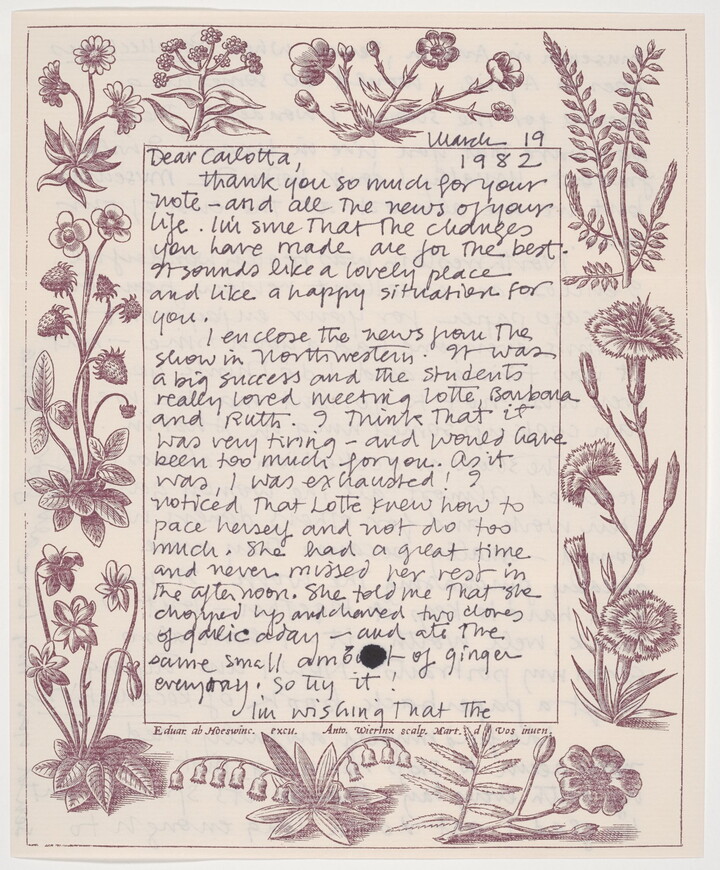 March 19
1982
Dear Carlotta,
Thank you so much for your
note – and all the news of your
life. I'm sure that the changes
you have made are for the best.
It sounds like a lovely place
and like a happy situation for
you.
I enclose the news from the
show in Northwestern. It was
a big success and the students
really loved meeting Lotte, Barbara
and Ruth. I think that it
was very tiring – and would have
been too much for you. As it
was, I was exhausted! I
noticed that Lotte knew how to
pace herself and not do too
much. She had a great time
and never missed her rest in
the afternoon. She told me that she
chopped up and chewed two cloves
of garlic a day – and ate the
same small amount of ginger
everyday. So try it!
I'm wishing that the
Eduar. ab Hoeswinc. excu. Anto. Wierinx scalp. Mart. d Vos inuen.